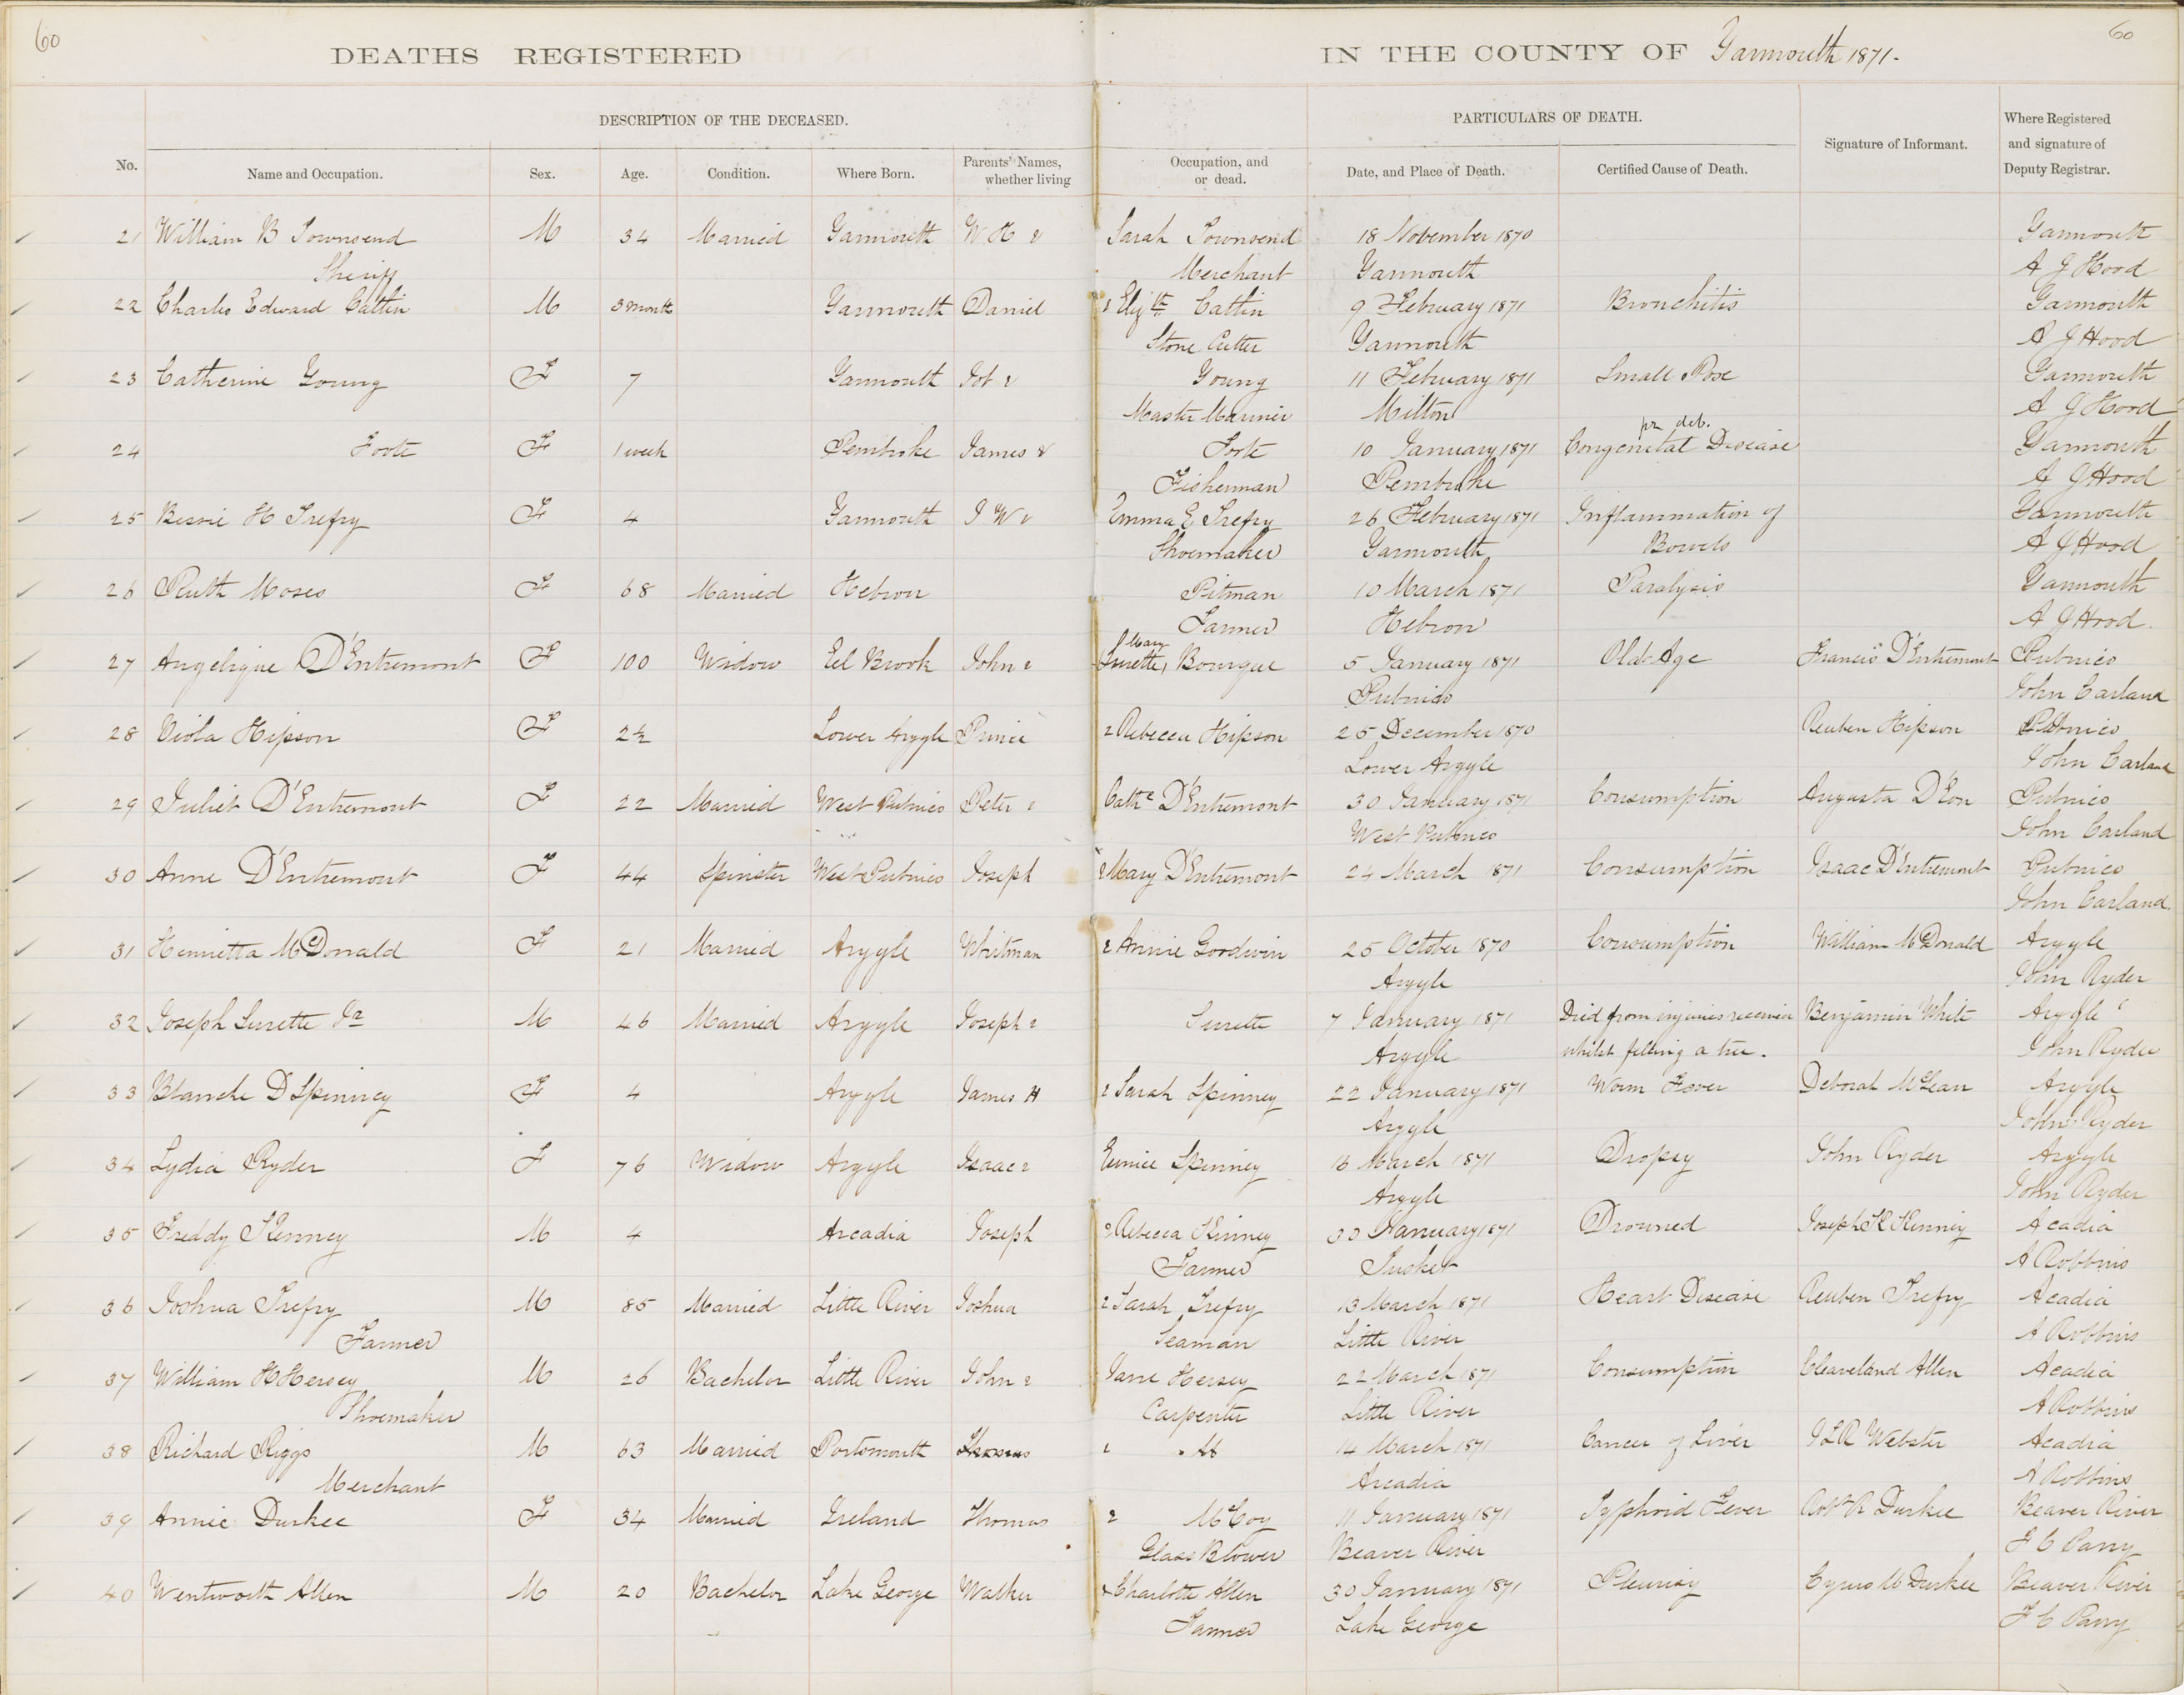 60
60
DEATHS REGISTERED IN THE COUNTY OF Yarmouth 1871.
DESCRIPTION OF THE DECEASED.
PARTICULARS OF DEATH.
Signature of Informant.
Where Registered
and signature of
Deputy Registrar.
No.
Name and Occupation.
Sex.
Age.
Condition.
Where Born.
Parents' Names,
whether living
Occupation, and
or dead.
Date, and Place of Death.
Certified Cause of Death.
21 William B Townsend M 34 Married Yarmouth W H & Sarah Townsend 18 November 1870 Yarmouth
Sheriff Merchant Yarmouth A J Hood
22 Charles Edward Catlin M 3 Month Yarmouth Daniel & Elizth Catlin 9 February 1871 Bronchitis Yarmouth
Stone Cutter Yarmouth A J Hood
23 Catherine Young F 7 Yarmouth Job & Young 11 February 1871 Small Pox Yarmouth
Master Mariner Milton A J Hood
pr deb.
24 Foote F 1 week Pembroke James & Foote 10 January 1871 Congenital Disease Yarmouth
Fisherman Pembroke A J Hood
25 Bessie H Trefry F 4 Yarmouth J W & Emma E Trefry 26 February 1871 Inflammation of Yarmouth
Shoemaker Yarmouth Bowels A J Hood
26 Ruth Moses F 68 Married Hebron Pitman 10 March 1871 Paralysis Yarmouth
Farmer Hebron A J Hood.
Mary
27 Angelique D'Entremont F 100 Widow Eel Brook John & (Surette) Bourque 5 January 1871 Old Age Francis D'Entremont Pubnico
Pubnico John Carland
28 Viola Hipson F 2½ Lower Argyle Prince & Rebecca Hipson 25 December 1870 Reuben Hipson Pubnico
Lower Argyle John Carland
29 Juliet D'Entremont F 22 Married West Pubnico Peter & Cathe D'Entremont 30 January 1871 Consumption Augusta D'Eon Pubnico
West Pubnico John Carland
30 Anne D'Entremont F 44 Spinster West Pubnico Joseph & Mary D'Entremont 24 March 1871 Consumption Isaac D'Entremont Pubnico
John Carland
31 Henrietta McDonald F 21 Married Argyle Whitman & Annie Goodwin 25 October 1870 Consumption William McDonald Argyle
Argyle John Ryder
32 Joseph Surette Jr M 46 Married Argyle Joseph & Surette 7 January 1871 Died from injuries received Benjamin White Argyle
Argyle whilst felling a tree. John Ryder
33 Blanche D Spinney F 4 Argyle James H & Sarah Spinney 22 January 1871 Worm Fever Deborah McLean Argyle
Argyle John Ryder
34 Lydia Ryder F 76 Widow Argyle Isaac & Eunice Spinney 16 March 1871 Dropsy John Ryder Argyle
Argyle John Ryder
35 Freddy Kenney M 4 Arcadia Joseph & Rebecca Kinney 30 January 1871 Drowned Joseph K Kenney Acadia
Farmer Tusket A Robbins
36 Joshua Trefry M 85 Married Little River Joshua & Sarah Trefry 13 March 1871 Heart Disease Reuben Trefry Acadia
Farmer Seaman Little River A Robbins
37 William H Hersey M 26 Bachelor Little River John & Jane Hersey 22 March 1871 Consumption Cleaveland Allen Acadia
Shoemaker Carpenter Little River A Robbins
38 Richard Riggs M 63 Married Portsmouth Thomas & 14 March 1871 Cancer of Liver J L R Webster Acadia
Merchant Arcadia A Robbins
39 Annie Durkee F 34 Married Ireland Thomas & McCoy 11 January 1871 Typhoid Fever Robt R Durkee Beaver River
Glass Blower Beaver River J C Parry
40 Wentworth Allen M 20 Bachelor Lake George Walker & Charlotte Allen 30 January 1871 Pleurisy Cyrus M Durkee Beaver River
Farmer Lake George J C Parry